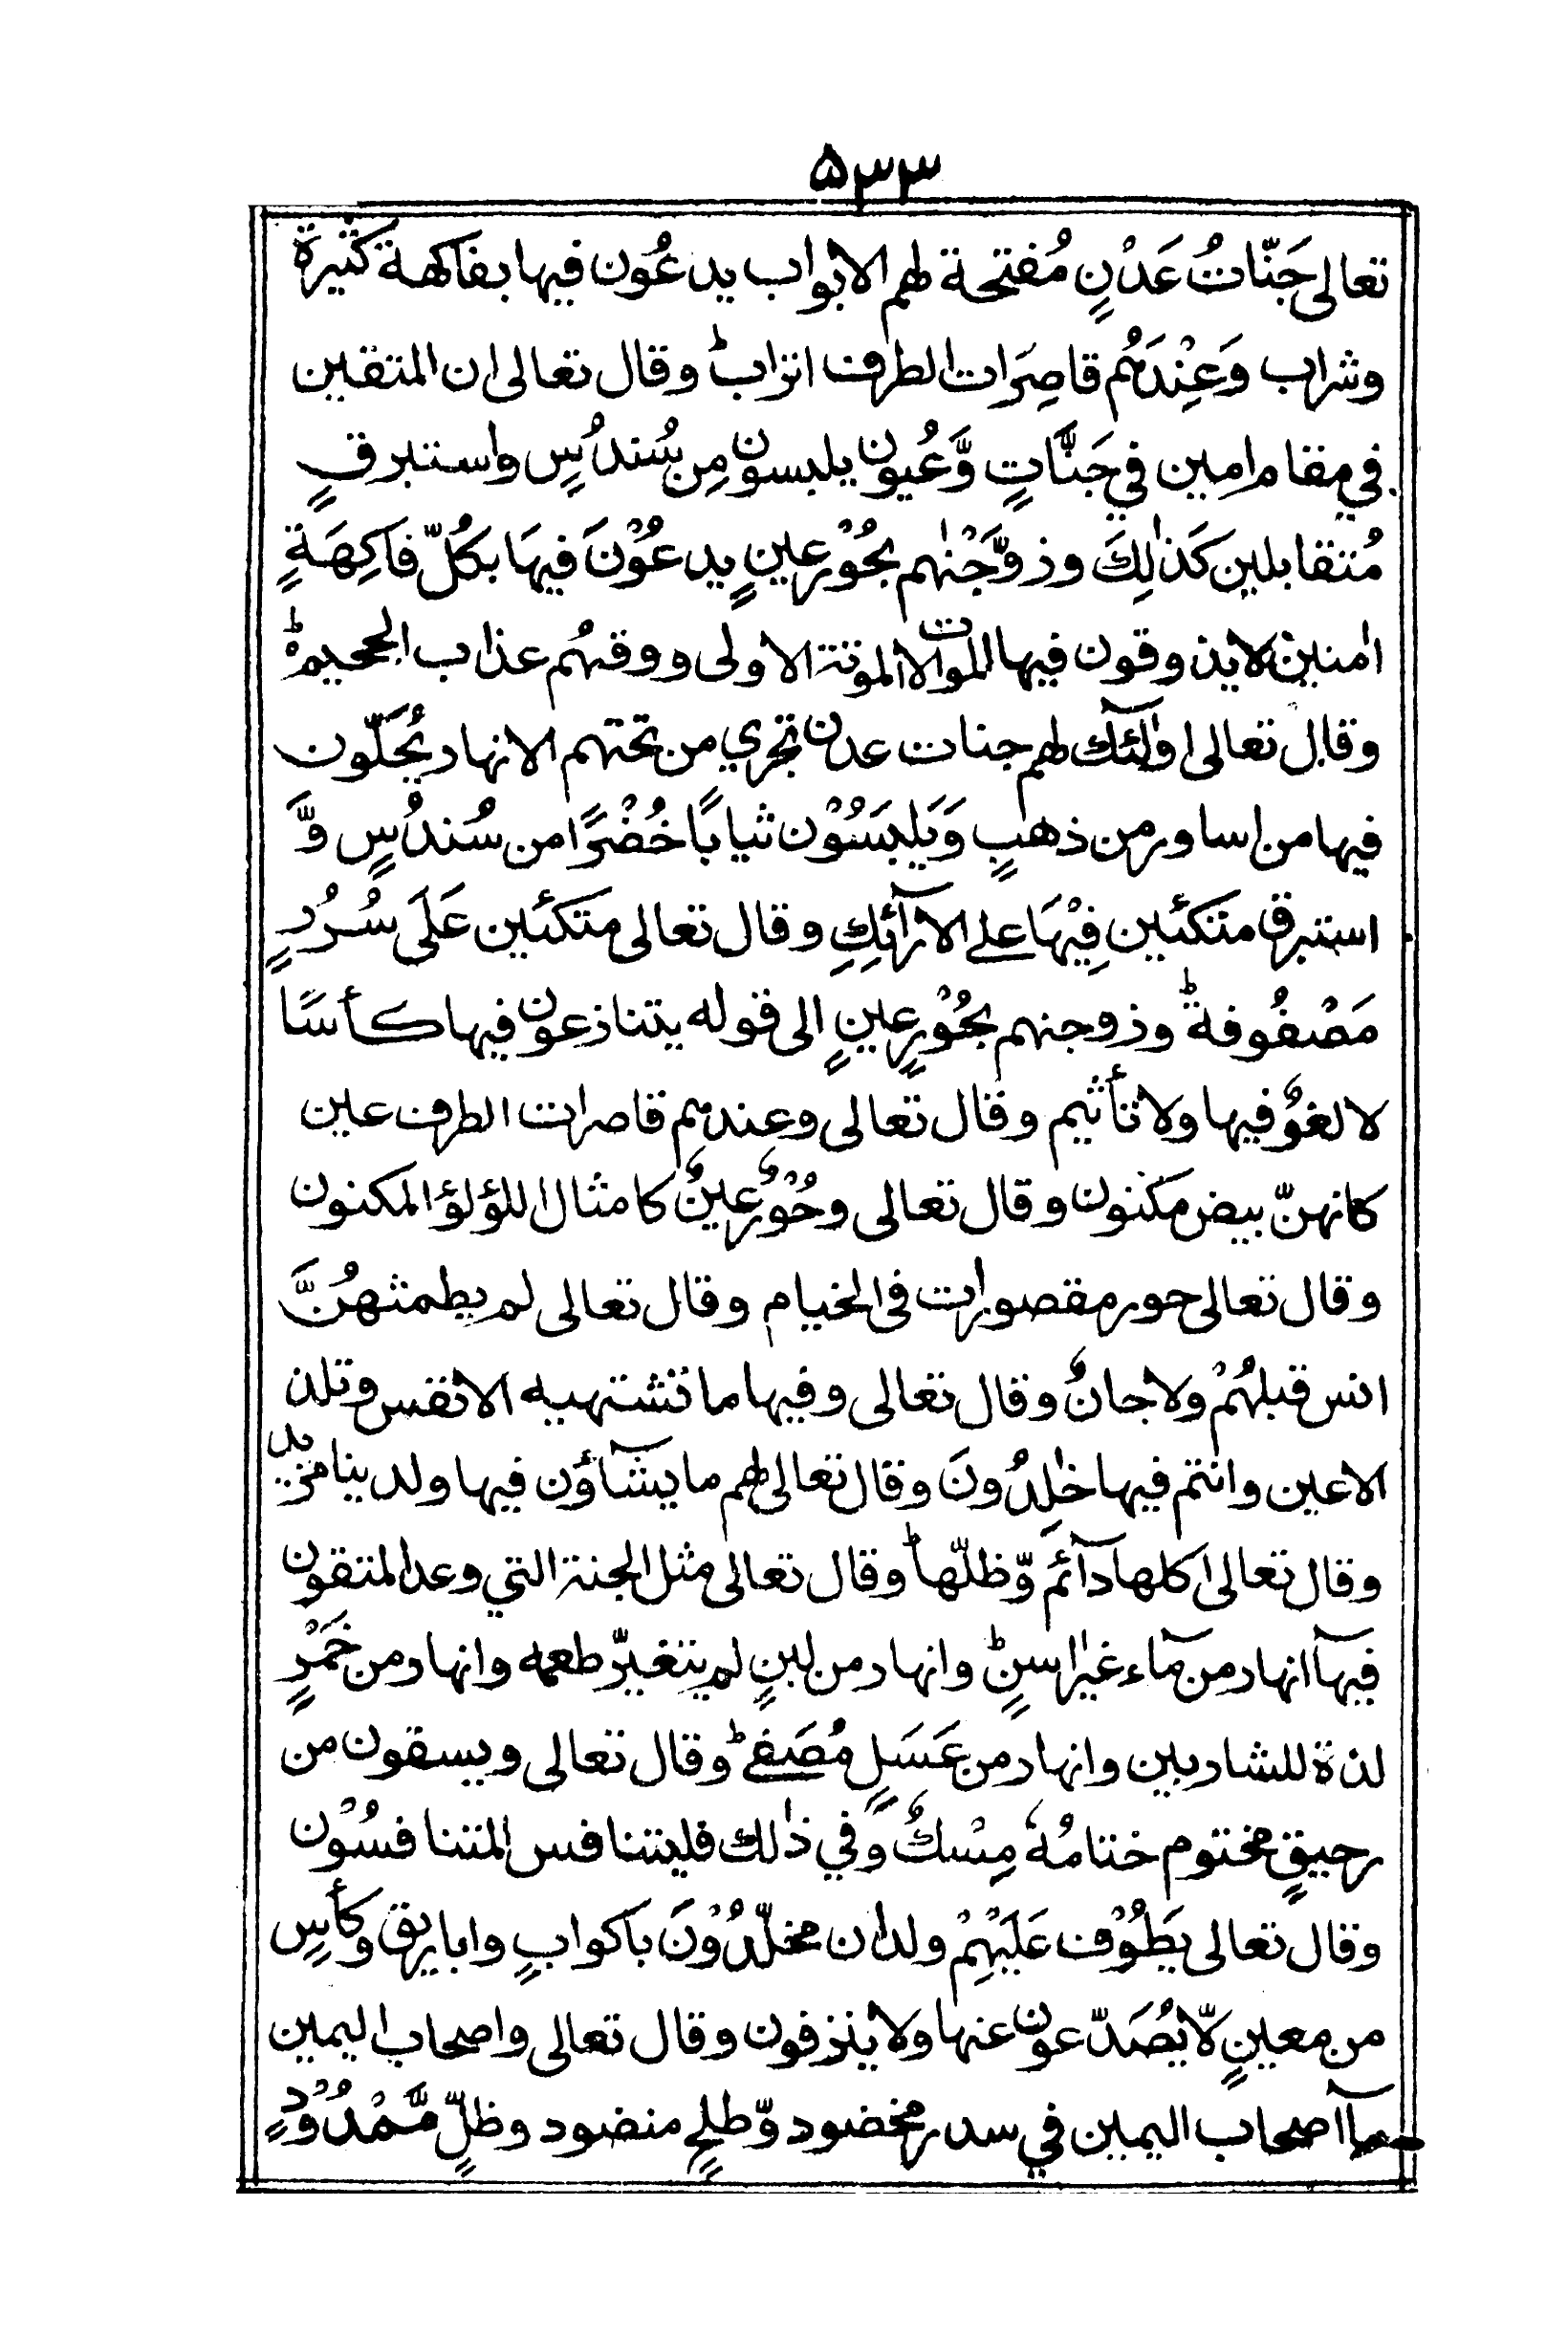 ۵۳۳
تعالى جَنّاتُ عَدْنٍ مُفتحة لهم الابواب يدعُون فيها بفاكهة كثيرة
وشراب وَعِنْدَهُم قاصِرَات الطرف اترابٌ وقال تعالى ان المتقين
في مقام امين في جَنَّاتٍ وَّعُيون يلبسون مِن سُندُسٍ واستبرقٍ
مُتقابلين كَذٰلِكَ وزوَّجْنٰهم بحُوْر عينٍ يدعُوْنَ فيهَا بكُلّ فاكِهَةٍ
اٰمنين لا يذوقون فيها الموت الا الموتة الاولى ووقهُم عذاب الجحيم ط
وقال تعالى اولٰٓئك لهم جنات عدن تجري من تحتهم الانهار يُحَلّون
فيها من اساور من ذهبٍ وَيَلبَسُوْن ثيابًا خُضْرًا من سُندُسٍ وَّ
استبرق متكئين فِيْهَا على الارآئِكِ وقال تعالى متكئين عَلَى سُرُرٍ
مَصْفُوفة ط وزوجنهم بحُوْرٍ عينٍ الى قوله يتنازعون فيها كأسًا
لا لغوٌ فيها ولا تأثيم وقال تعالى وعندهم قاصرات الطرف عين
كانهنّ بيض مكنون وقال تعالى وحُوْرٌ عينٌ كامثال اللؤلؤ المكنون
وقال تعالى حور مقصورات فى الخيام وقال تعالى لم يطمثهُنَّ
انس قبلهُمْ ولا جانٌ وقال تعالى وفيها ما تشتهيه الانفس وتلذ
الاعين وانتم فيها خٰلِدُونَ وقال تعالى لهم ما يشآؤن فيها ولدينا مزيد
وقال تعالى اكلها دآئم وّظلّها ط وقال تعالى مثل الجنة التي وعد المتقون
فيهآ انهار من مآء غير اٰسنٍ ط وانهار من لبنٍ لم يتغيّر طعمه وانهار من خَمْرٍ
لذة للشاربين وانهار من عَسَلٍ مُصَفے ط وقال تعالى ويسقون من
رحيقٍ مختوم ختامُهٗ مِسْكٌ وَفي ذٰلك فليتنافس المتنافسُوْن
وقال تعالى يَطُوْف عَلَيْهِمْ ولدان مخلّدُوْنَ باكوابٍ واباريق وكأسٍ
من معينٍ لّا يُصَدّعون عنها ولا ينزفون وقال تعالى واصحاب اليمين
مآ اصحاب اليمين في سدر مخضود وّطلحٍ منضود وظلٍّ مَّمْدُوْدٍ